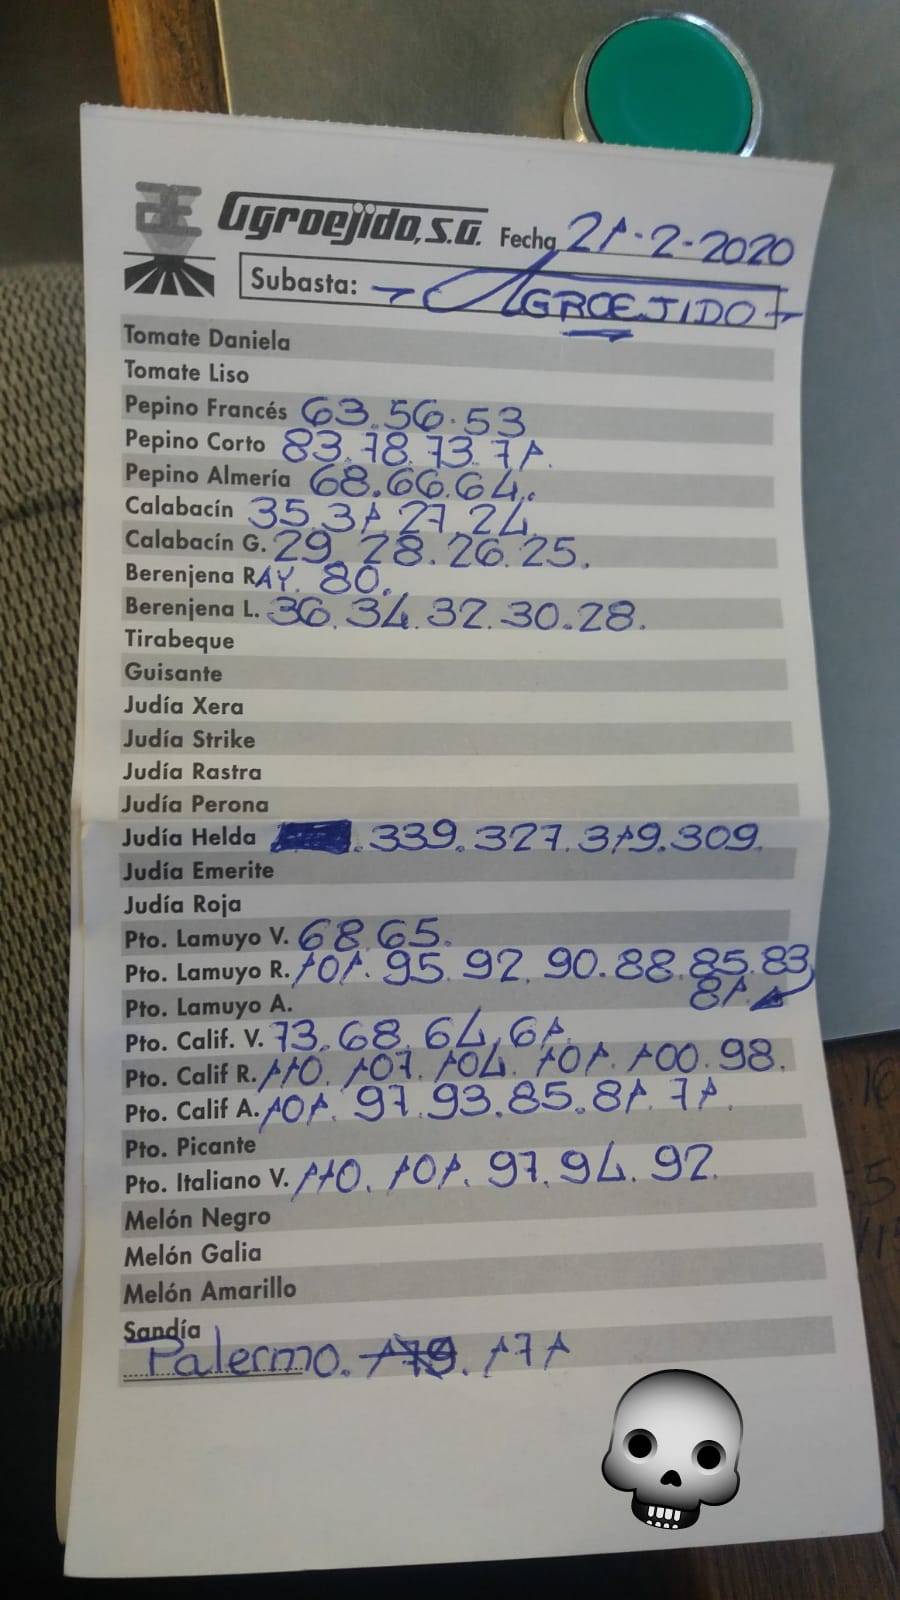 Agroejido, S.A. Fecha 21-2-2020
Subasta: AGROEJIDO
Tomate Daniela
Tomate Liso
Pepino Francés 63.56.53
Pepino Corto 83.78.73.71.
Pepino Almería 68.66.64.
Calabacín 35.31.27.24
Calabacín G. 29.28.26.25.
Berenjena RAY. 80.
Berenjena L. 36.34.32.30.28.
Tirabeque
Guisante
Judía Xera
Judía Strike
Judía Rastra
Judía Perona
Judía Helda .339.327.319.309.
Judía Emerite
Judía Roja
Pto. Lamuyo V. 68.65.
Pto. Lamuyo R. 101.95.92.90.88.85.83
81
Pto. Lamuyo A.
Pto. Calif. V. 73.68.64.61.
Pto. Calif R. 110.107.104.101.100.98.
Pto. Calif A. 101.97.93.85.81.71.
Pto. Picante
Pto. Italiano V. 110.101.97.94.92.
Melón Negro
Melón Galia
Melón Amarillo
Sandía
Palermo. 179. 171